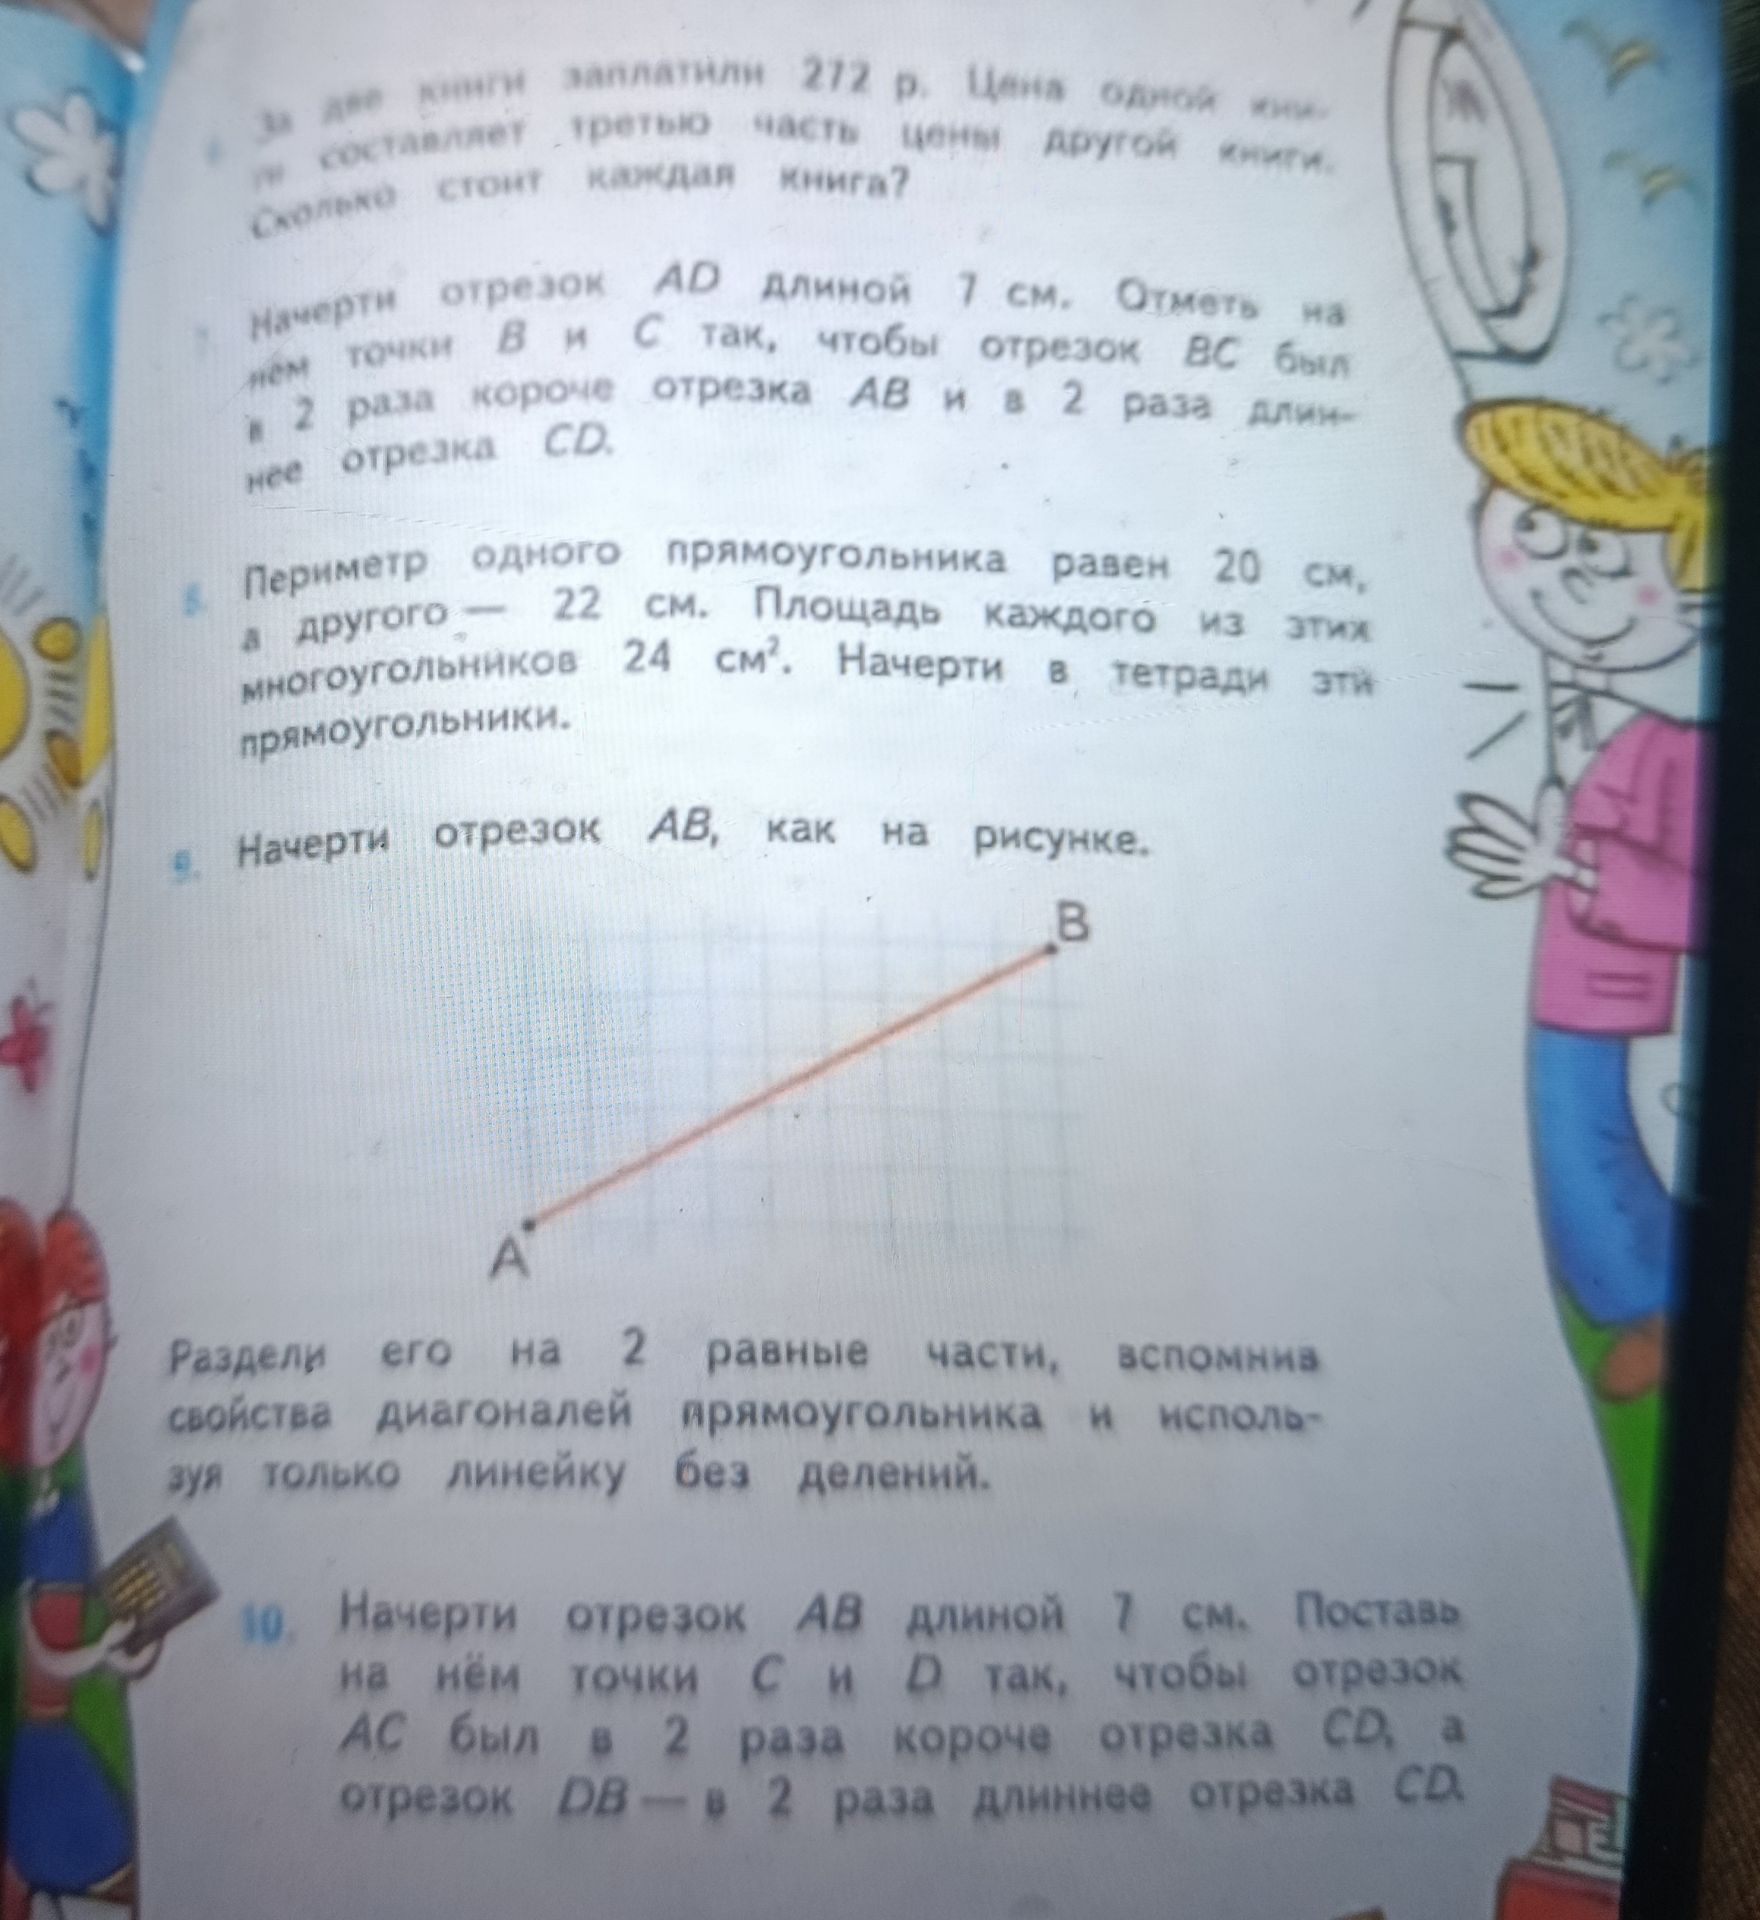 6. За две книги заплатили 272 р. Цена одной кни-
ги составляет третью часть цены другой книги.
Сколько стоит каждая книга?
7. Начерти отрезок AD длиной 7 см. Отметь на
нём точки B и C так, чтобы отрезок BC был
в 2 раза короче отрезка AB и в 2 раза длин-
нее отрезка CD.
8. Периметр одного прямоугольника равен 20 см,
а другого — 22 см. Площадь каждого из этих
многоугольников 24 см². Начерти в тетради эти
прямоугольники.
9. Начерти отрезок AB, как на рисунке.
B
A
Раздели его на 2 равные части, вспомнив
свойства диагоналей прямоугольника и исполь-
зуя только линейку без делений.
10. Начерти отрезок AB длиной 7 см. Поставь
на нём точки C и D так, чтобы отрезок
AC был в 2 раза короче отрезка CD, а
отрезок DB — в 2 раза длиннее отрезка CD.